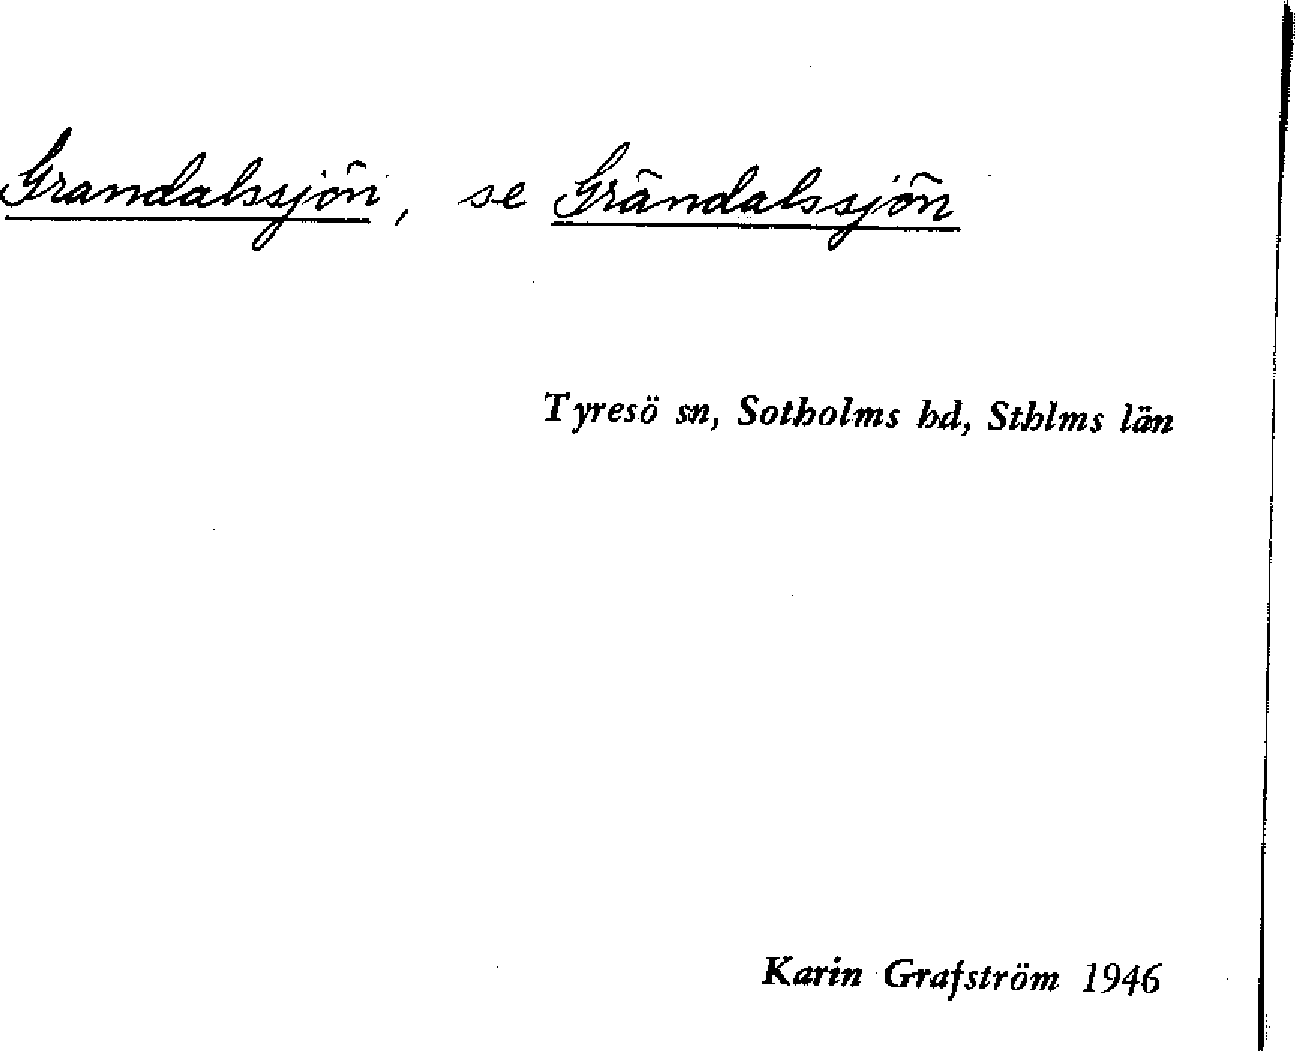 Grandalssjön, se Grändalssjön
Tyresö sn, Sotholms hd, Sthlms län
Karin Grafström 1946